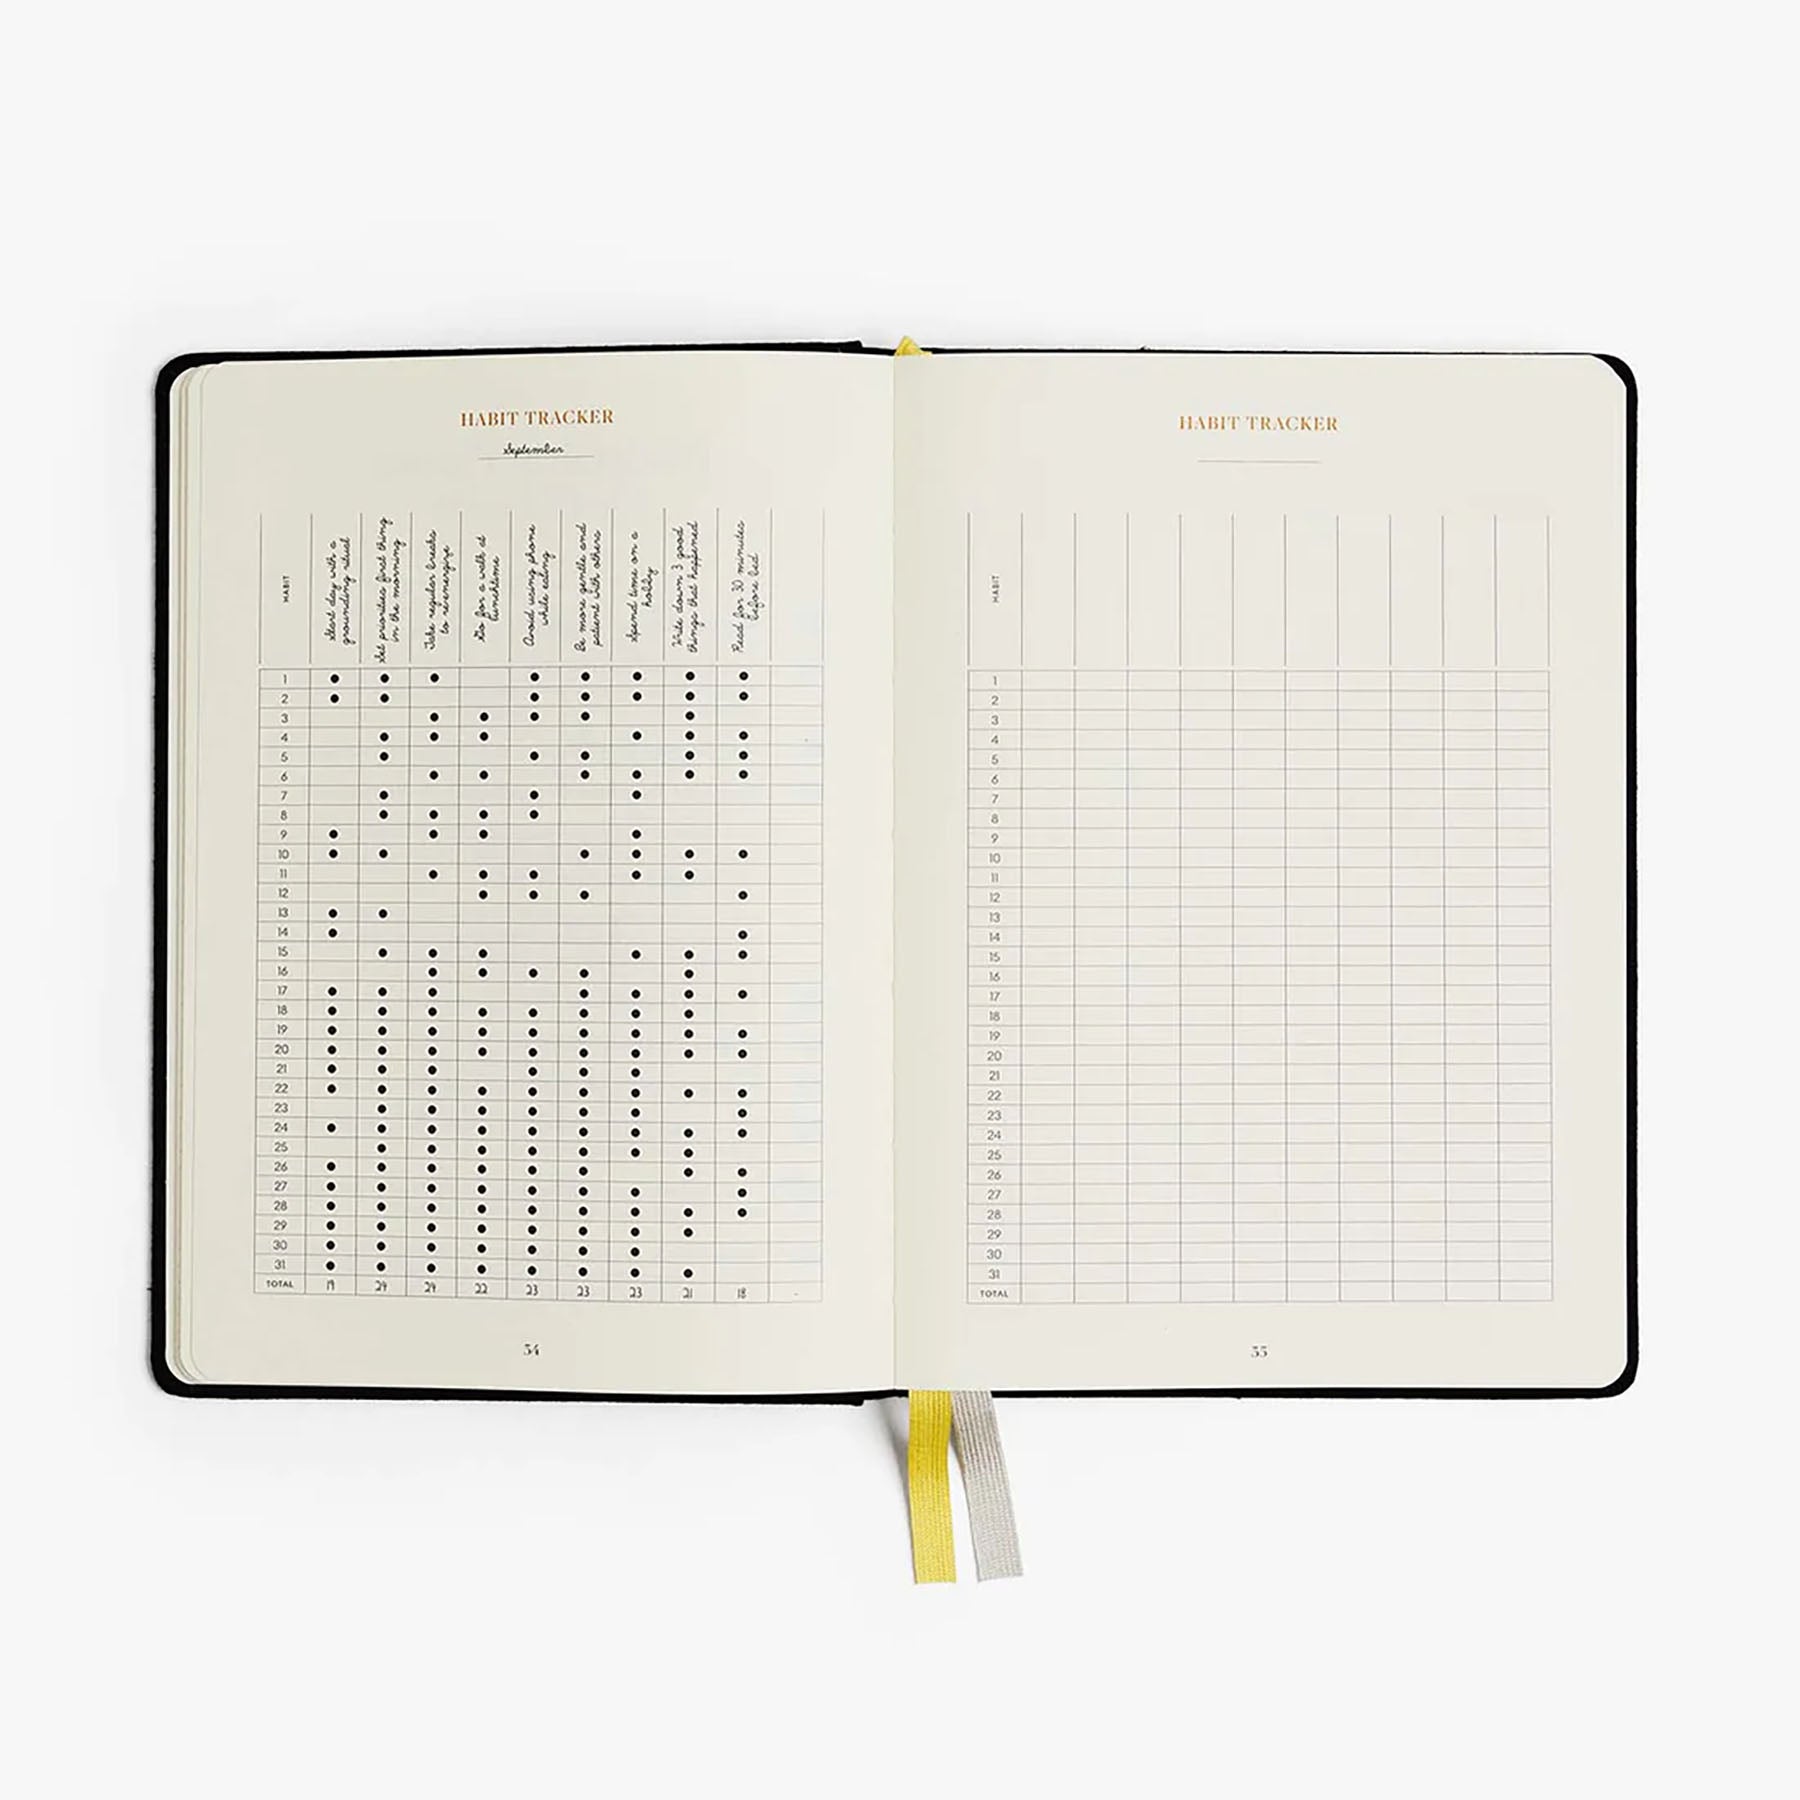 HABIT TRACKER
September
HABIT
Start day with a
grounding ritual
Set priorities first thing
in the morning
Take regular breaks
to re-energize
Go for a walk at
lunchtime
Avoid using phone
while eating
Be more gentle and
patient with others
Spend time on a
hobby
Write down 3 good
things that happened
Read for 30 minutes
before bed
1
2
3
4
5
6
7
8
9
10
11
12
13
14
15
16
17
18
19
20
21
22
23
24
25
26
27
28
29
30
31
TOTAL 19 24 24 22 23 23 23 21 18
54
HABIT TRACKER
HABIT
1
2
3
4
5
6
7
8
9
10
11
12
13
14
15
16
17
18
19
20
21
22
23
24
25
26
27
28
29
30
31
TOTAL
55